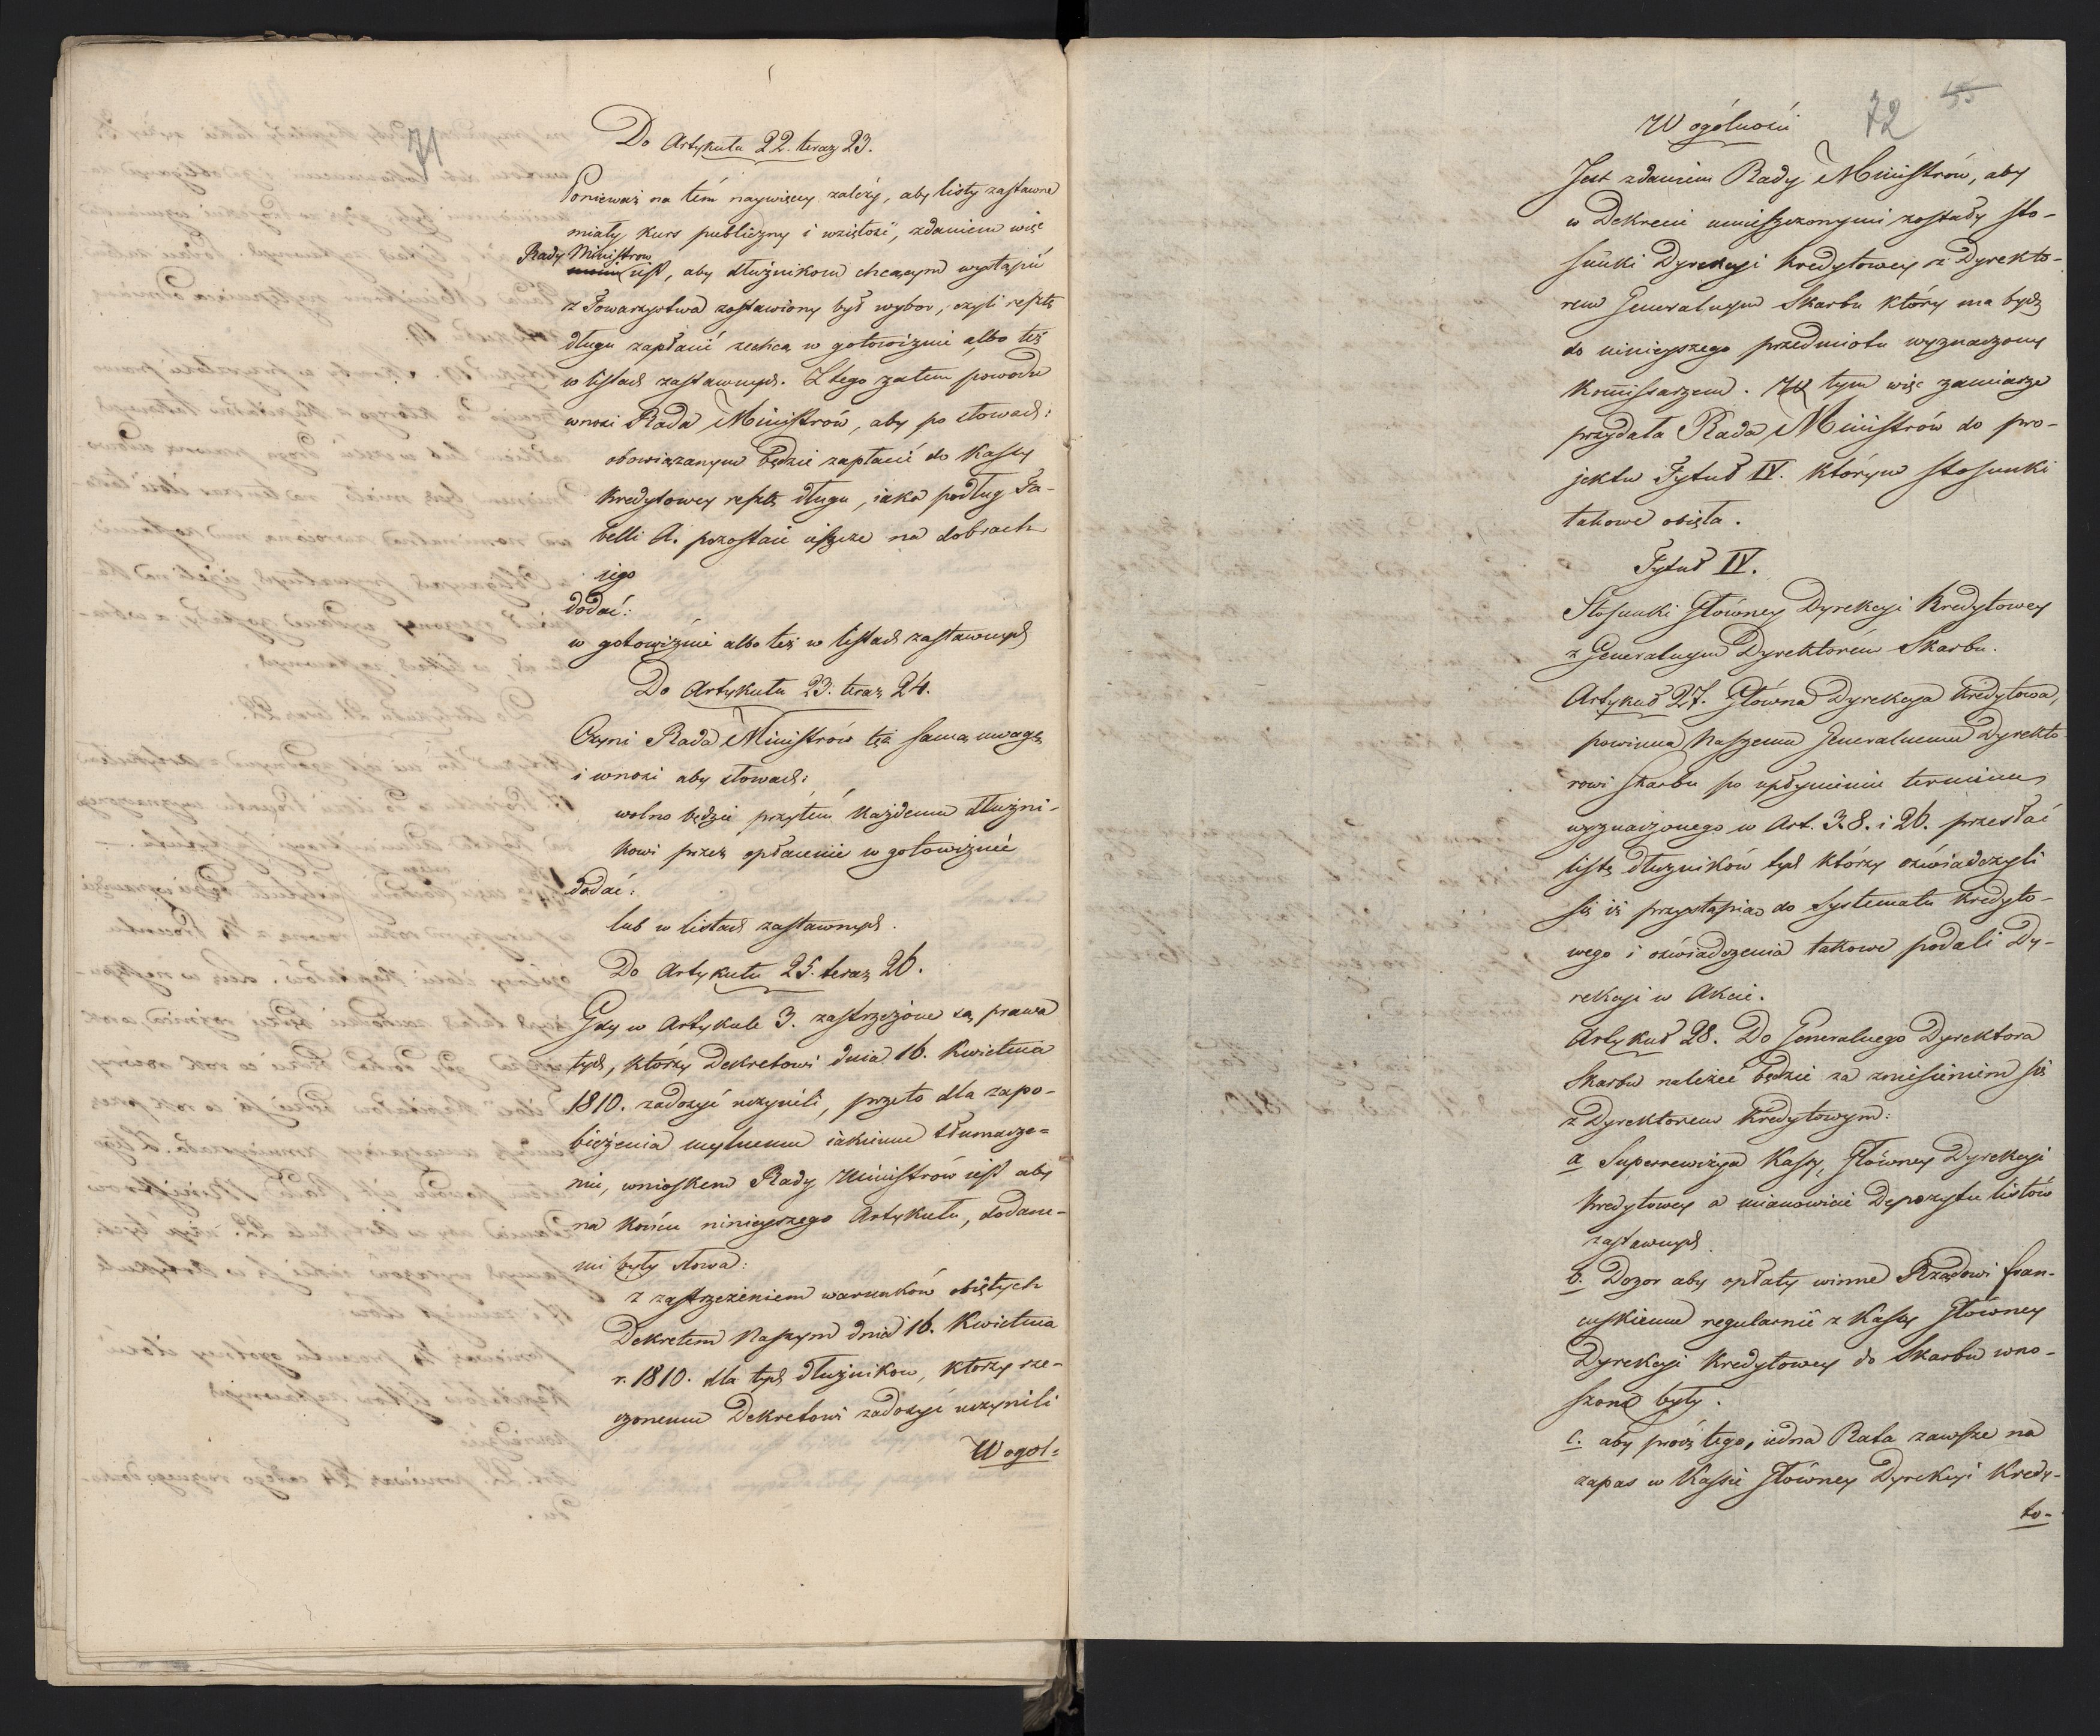 71
Do Artykułu 22. teraz 23.
Ponieważ na tém naywięcey zależy, aby listy zastawne
miały kurs publiczny i wziętość, zdaniem więc
Rady Ministrow
iest, aby dłużnikom chcącym wystąpić
z Towarzystwa zostawiony był wybor, czyli resztę
długu zapłacić zechcą w gotowiznie albo też
w listach zastawnych. Z tego zatem powodu
wnosi Rada Ministrów, aby po słowach:
obowiązanym będzie zapłacić do Kassy
Kredytowey resztę długu, iaka podług Ta-
belli A. pozostaie ieszcze na dobrach
iego
dodać:
w gotowiznie albo też w listach zastawnych
Do Artykułu 23. teraz 24.
Czyni Rada Ministrów tęż samą uwagę,
i wnosi aby słowach:
wolno będzie przytem każdemu dłużni-
kowi przez opłacenie w gotowiznie
dodać:
lub w listach zastawnych.
Do Artykułu 25. teraz 26.
Gdy w Artykule 3. zastrzeżone są prawa
tych, którzy Dekretowi dnia 16. Kwietnia
1810. zadosyć uczynili, przeto dla zapo-
bieżenia mylnemu iakiemu tłumacze=
niu, wnioskem Rady Ministrów iest aby
na końcu ninieyszego Artykułu, dodane-
mi były słowa:
z zastrzeżeniem warunków obiętych
Dekretem Naszym dnia 16. Kwietnia
r. 1810. dla tych dłużnikow, ktorzy rze-
czonemu Dekretowi zadosyć uczynili
W ogol=
72 55
W ogólności
Jest zdaniem Rady Ministrów, aby
w Dekrecie umieszczonymi zostały sto-
sunki Dyrekcyi Kredytowey z Dyrekto-
rem Generalnym Skarbu który ma bydź
do ninieyszego przedmiotu wyznaczony
Kommissarzem. W tym więc zamiarze
przydała Rada Ministrów do pro-
jektu Tytuł IV. którym stosunki
takowe obięła.
Tytuł IV.
Stosunki Główney Dyrekcyi Kredytowey
z Generalnym Dyrektorem Skarbu.
Artykuł 27. Główna Dyrekcya Kredytowa,
powinna Naszemu Generalnemu Dyrekto-
rowi Skarbu po upłynieniu terminu
wyznaczonego w Art. 3. 8. i 26. przesłać
listę dłużników tych którzy oświadczyli
się iż przystąpią do Systematu Kredyto-
wego i oświadczenia takowe podali Dy-
rekcyi w Akcie.
Artykuł 28. Do Generalnego Dyrektora
Skarbu należeć będzie za zniesieniem się
z Dyrektorem Kredytowym:
a Superrewizya Kassy, Główney Dyrekcyi
Kredytowey a mianowicie Depozytu listów
zastawnych.
b. Dozor aby opłaty winne Rządowi fran-
cuskiemu regularnie z Kassy Główney
Dyrekcyi Kredytowey do Skarbu wno-
szone były.
c. aby prócz tego, iedna Rata zawsze na
zapas w Kassie Główney Dyrekcyi Kredy-
to-